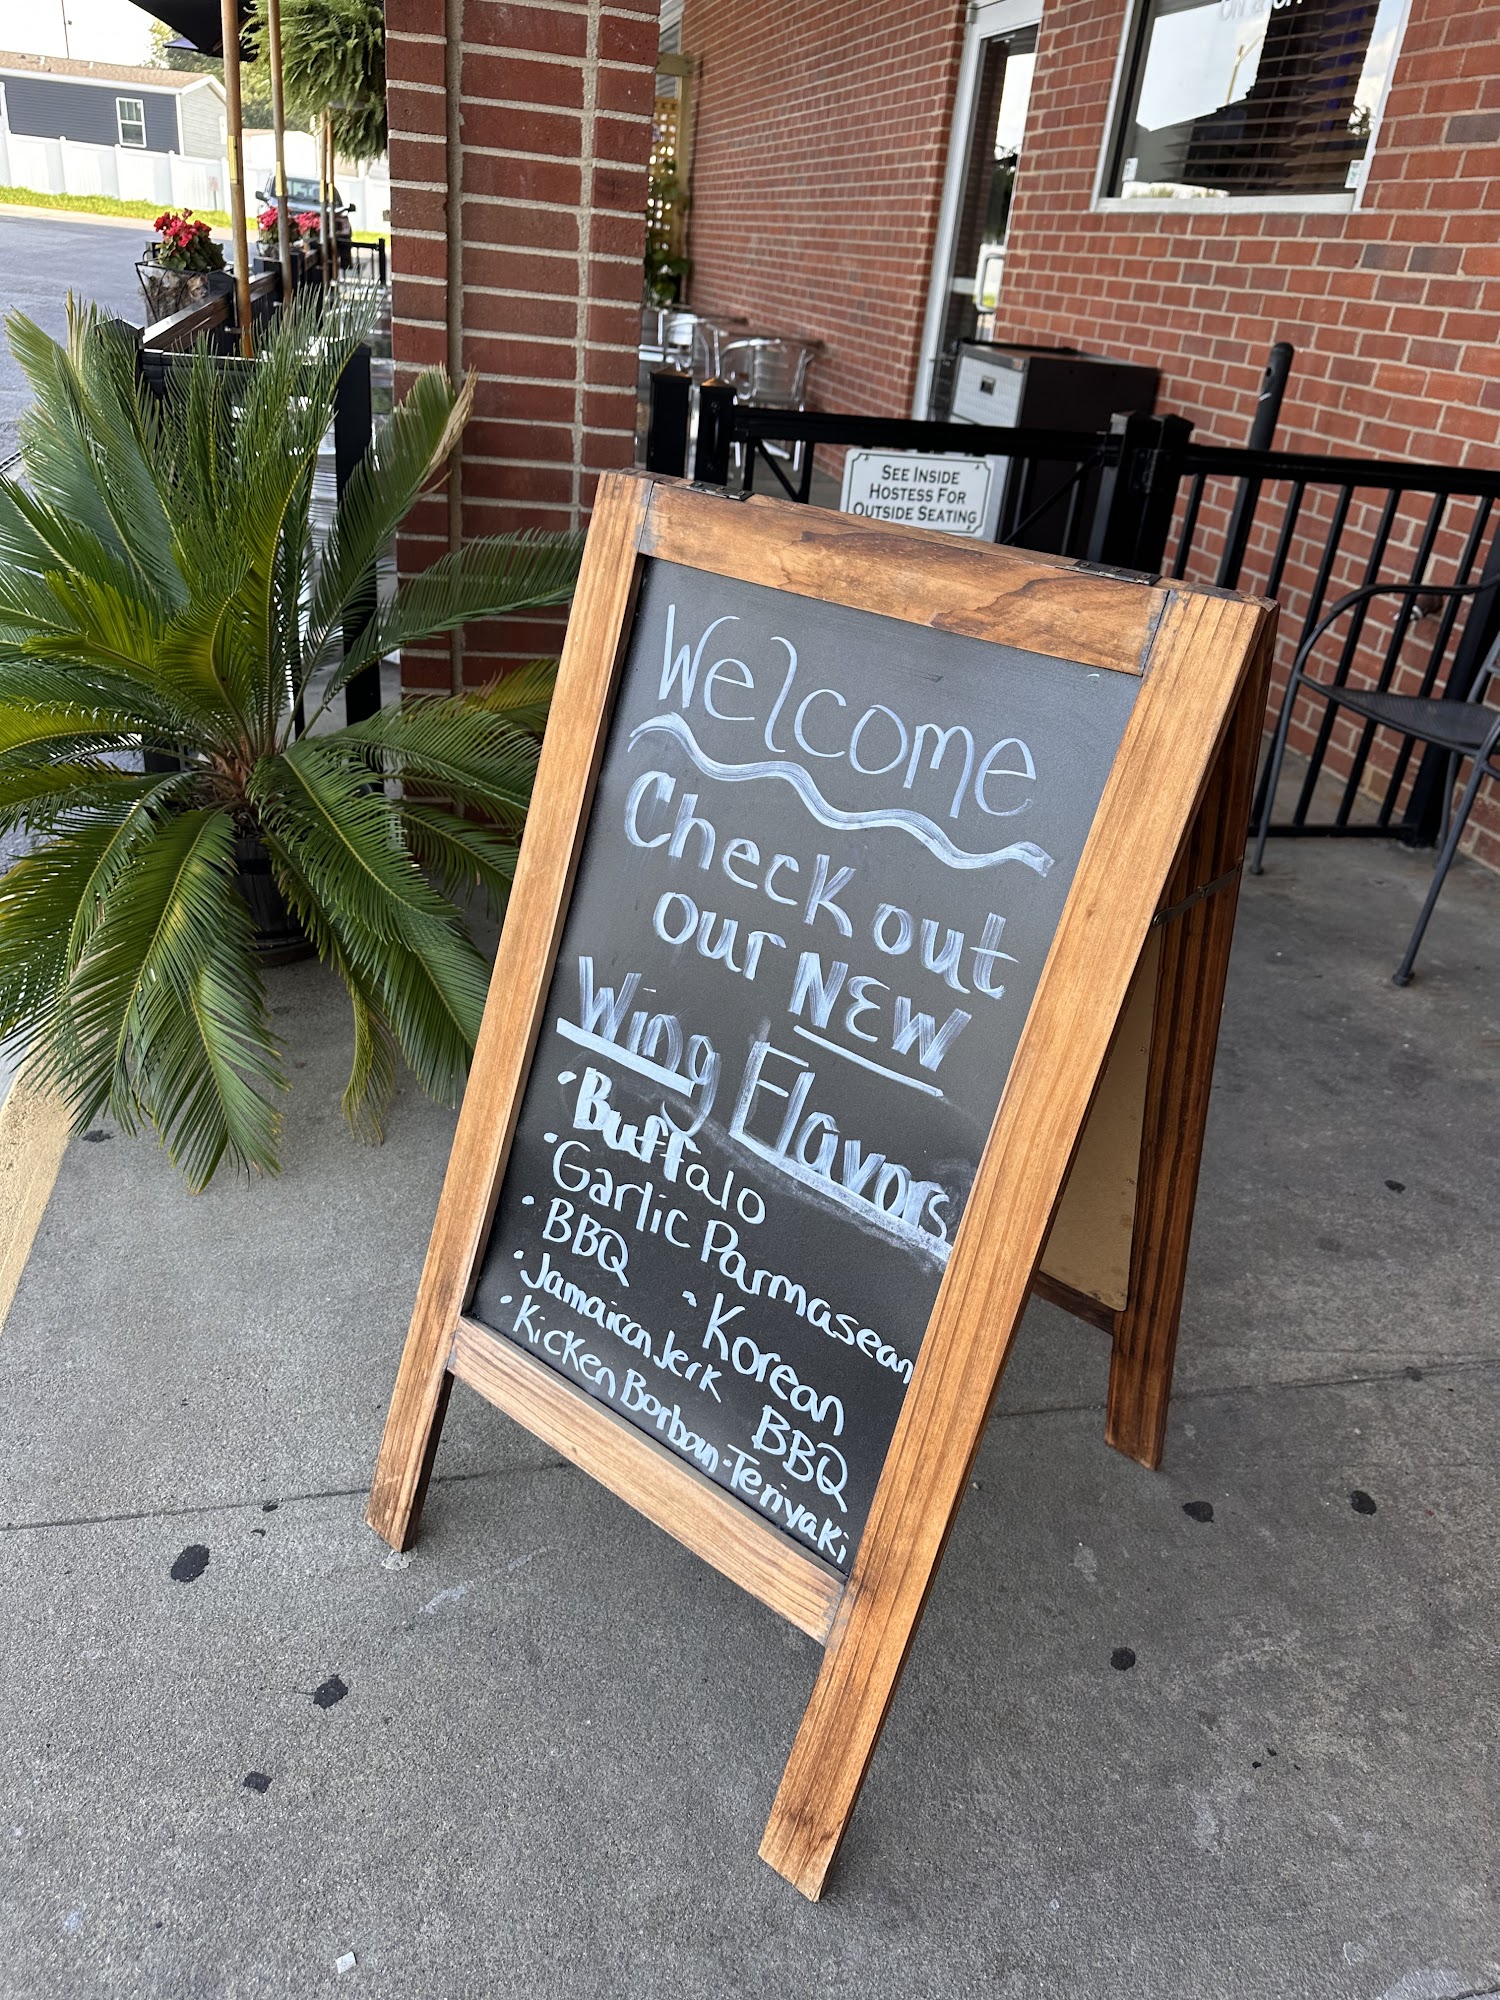 SEE INSIDE
HOSTESS FOR
OUTSIDE SEATING
Welcome
Check out
our NEW
Wing Flavors
• Buffalo
• Garlic Parmasean
• BBQ
• Korean BBQ
• Jamaican Jerk
• Kicken Borboun
• Teriyaki